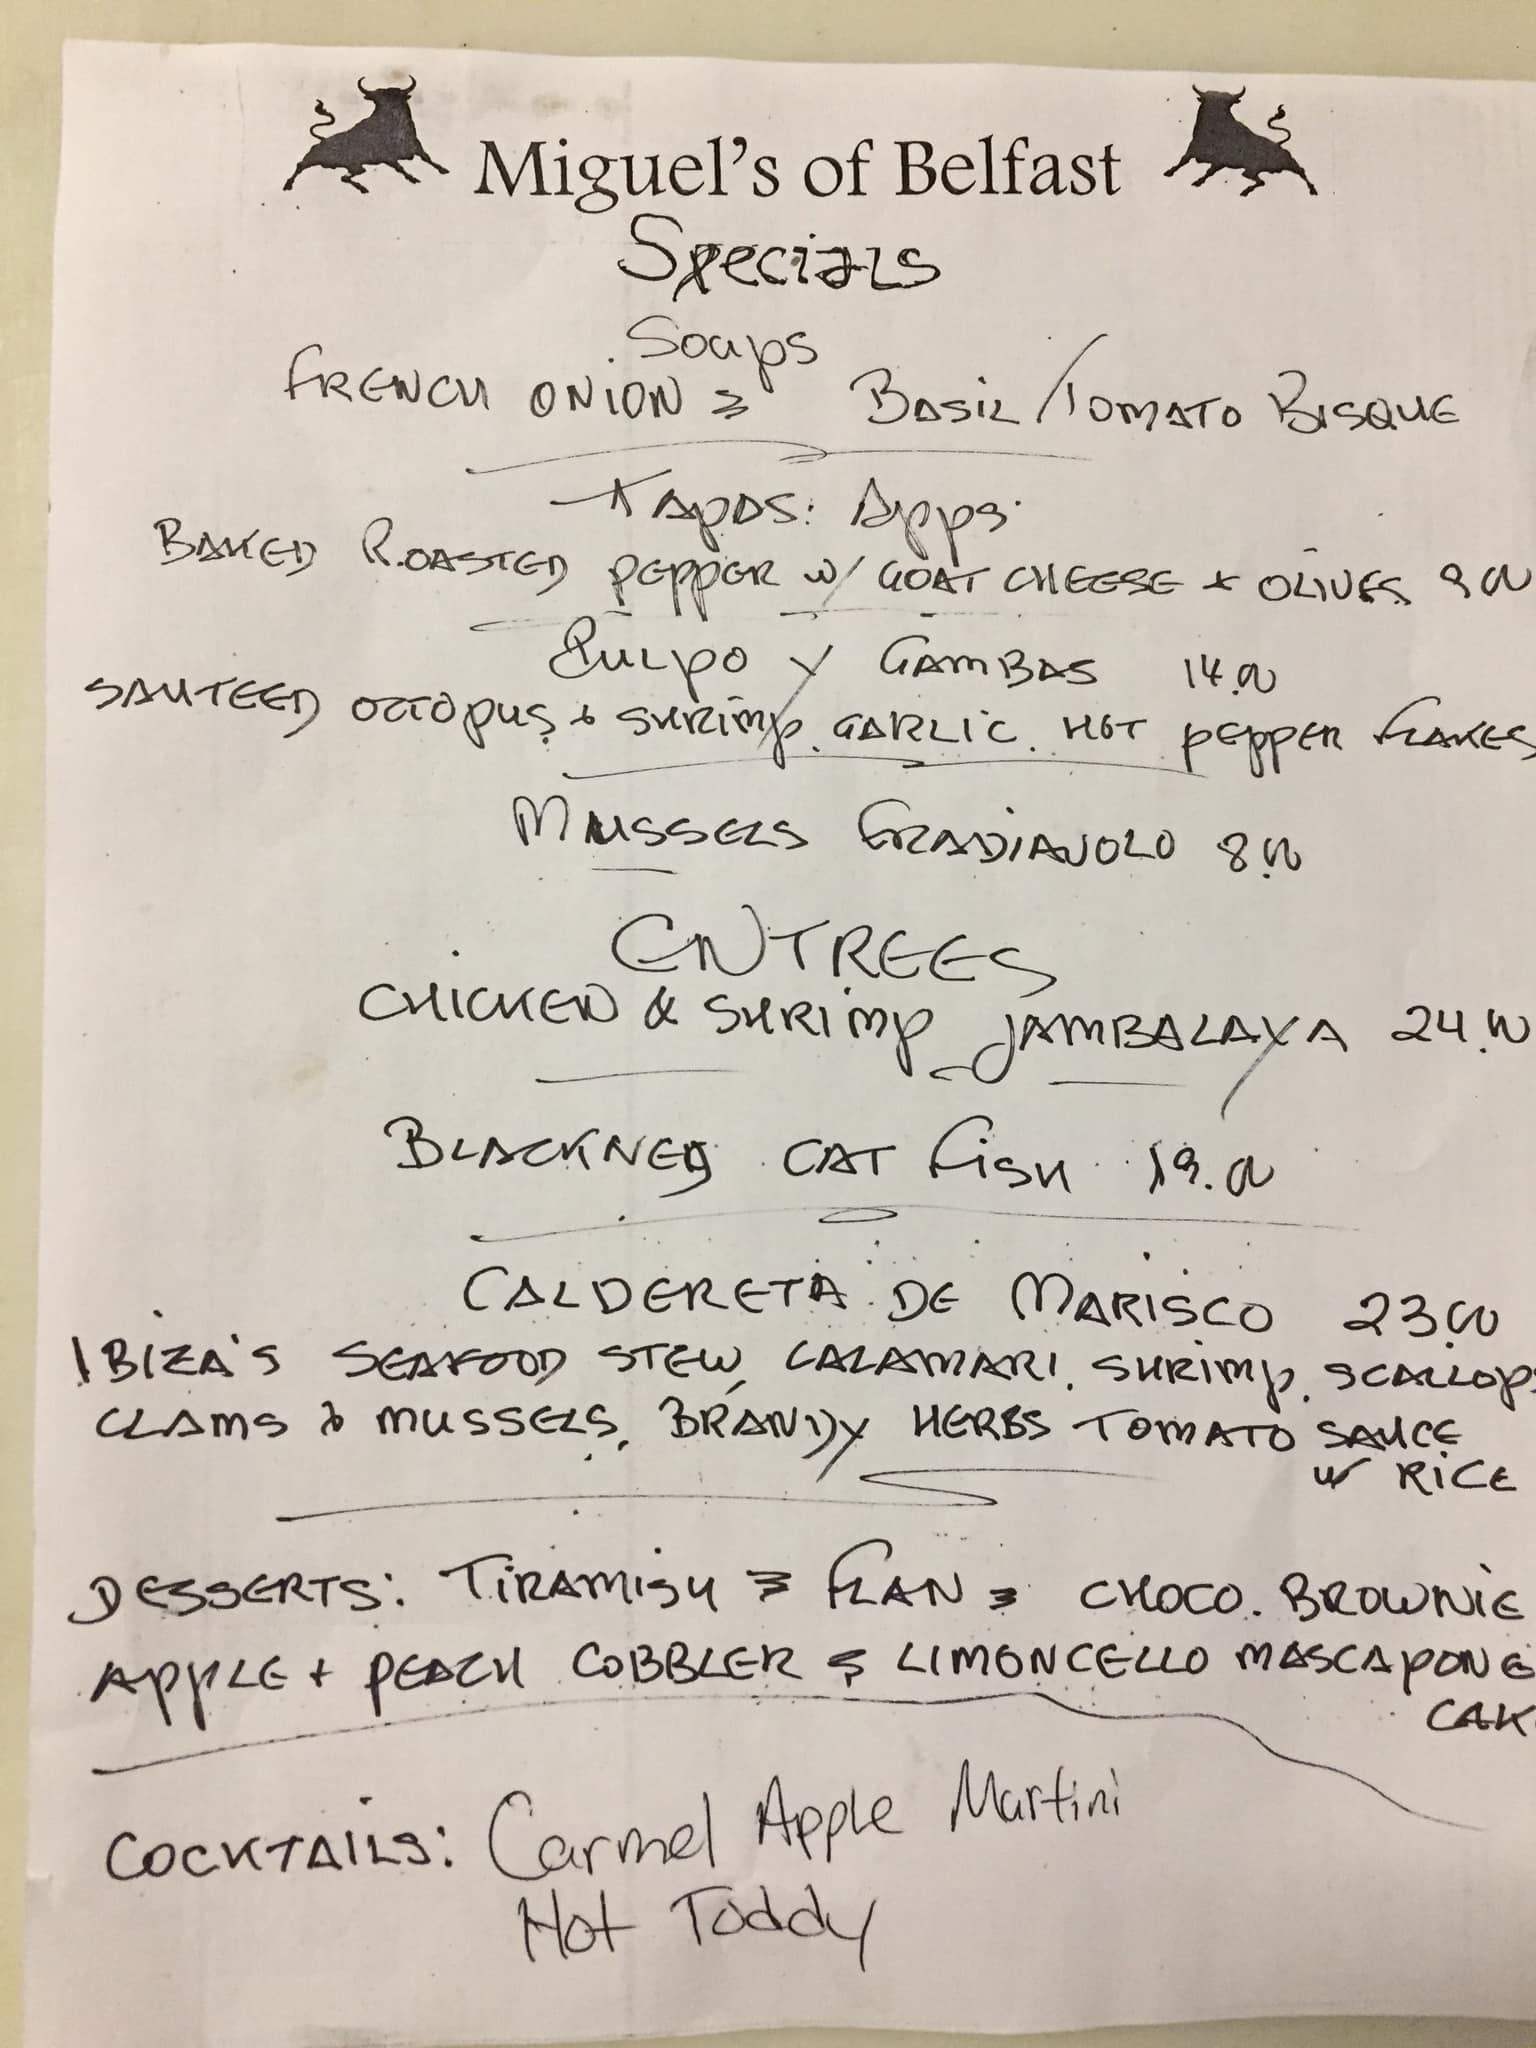 Miguel's of Belfast
Specials
Soups
FRENCH ONION BASIL/TOMATO BISQUE
TAPAS: Apps
BAKED ROASTED PEPPER W/ GOAT CHEESE + OLIVES 9.00
PULPO Y GAMBAS 14.00
SAUTEED OCTOPUS & SHRIMP, GARLIC, HOT PEPPER FLAKES
MUSSELS FRADIAVOLO 8.00
ENTREES
CHICKEN & SHRIMP JAMBALAYA 24.00
BLACKNED CAT FISH 19.00
CALDERETA DE MARISCO 23.00
IBIZA'S SEAFOOD STEW, CALAMARI, SHRIMP, SCALLOPS
CLAMS & MUSSELS, BRANDY HERBS TOMATO SAUCE
W RICE
DESSERTS: TIRAMISU FLAN CHOCO. BROWNIE
APPLE + PEACH COBBLER & LIMONCELLO MASCAPONE
CAK
COCKTAILS: Carmel Apple Martini
Hot Toddy